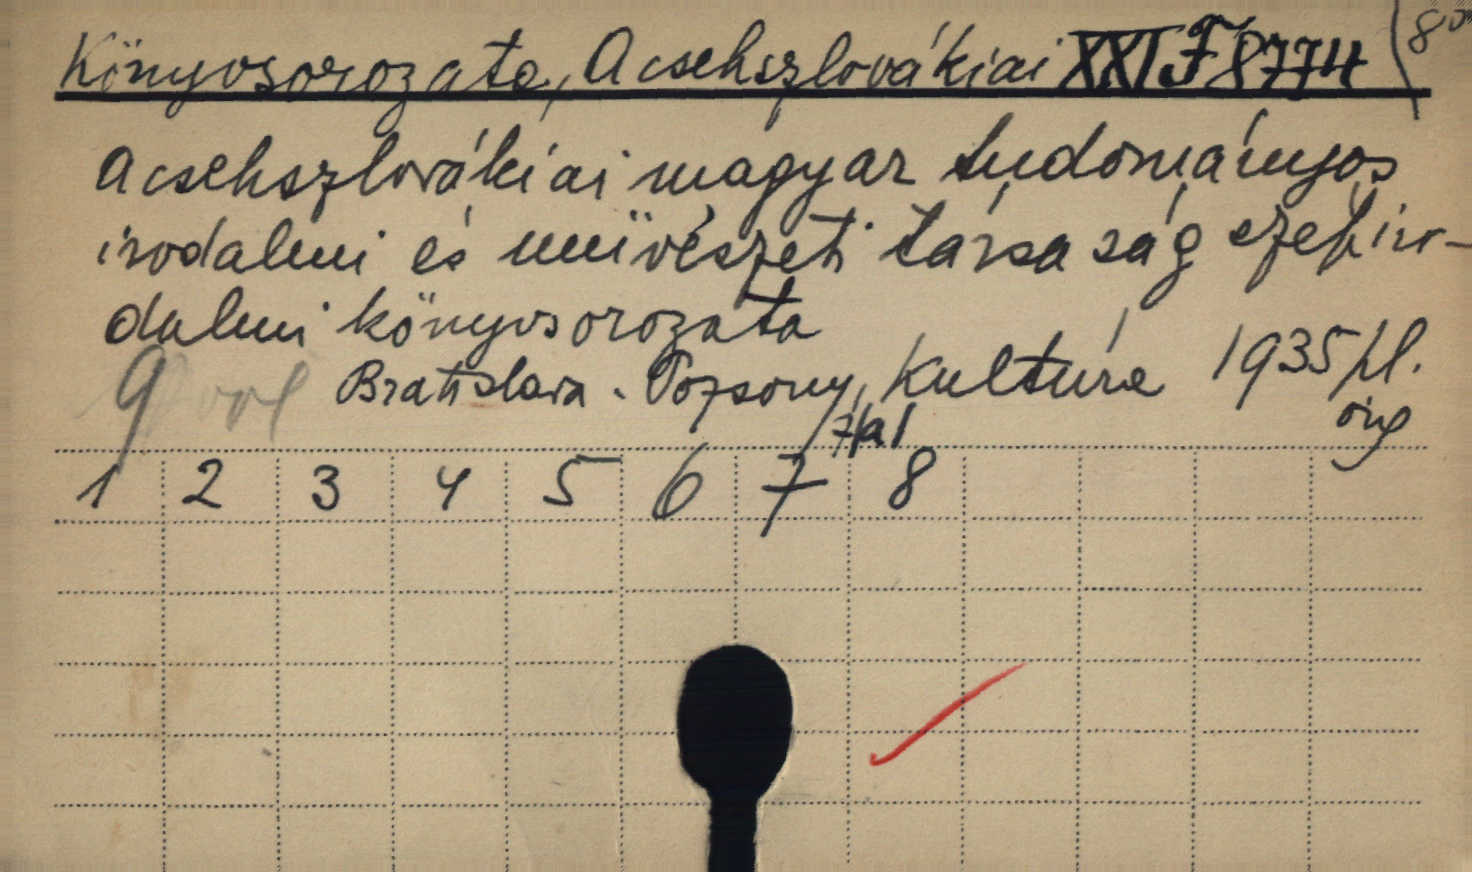 Könyvsorozata, A csehszlovákiai XXI F 8774 8°
A csehszlovákiai magyar tudományos
irodalmi és müvészeti társaság szépiro-
dalmi könyvsorozata
9 Bratislava - Pozsony, Kultúra 1935 pl.
7/a/
1 2 3 4 5 6 7 8